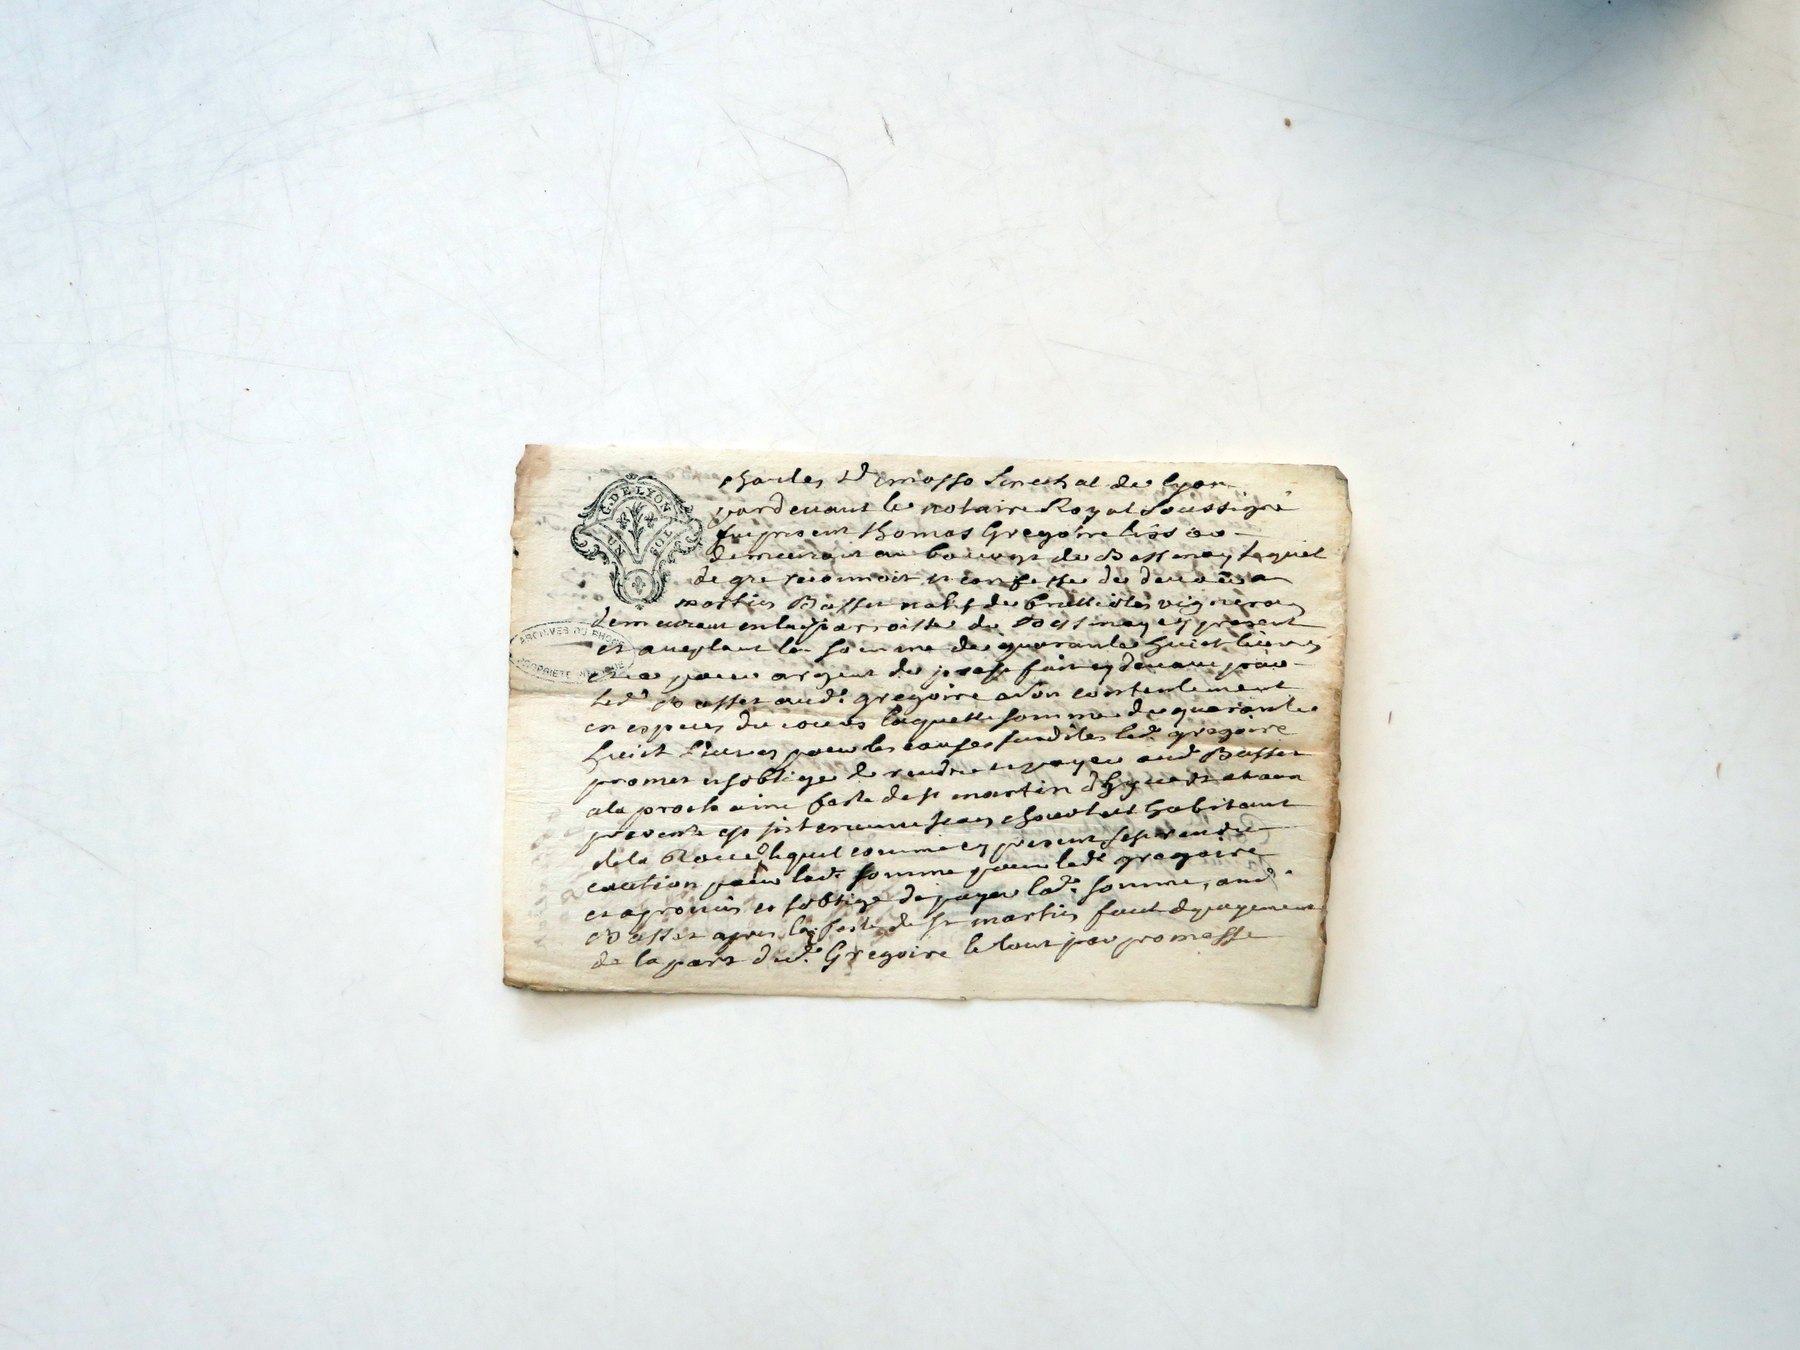 G. DE LYON
UN SOL
ARCHIVES DU RHÔNE
PROPRIÉTÉ PUBLIQUE
Charles De masso Senechal de lyon
pardevant le notaire Royal Soussigné
fut present thomas Gregoire tissier
demeurant au bourg de Bessenay lequel
de gre reconnoit et confesse de devoir a
martin Basset natif de brullioles vigneron
demeurant en la parroisse de Bessenay cy present
et aceptant la somme de quarante huict livres
et ce pour argent de prest fait cy devant par
led. Basset aud. gregoire a son contentement
en especes du cours laquelle somme de quarante
huict livres pour les causes susdites led. gregoire
promet et soblige de rendre et payer aud. Basset
a la prochaine feste de st martin d'hyver et a son
present est intervenu Jean habitant
de la lequel comme cy present sest rendu
caution pour lad. somme pour led. gregoire
et a promis et soblige de payer lad. somme, aud.
Basset apres la feste de st martin faut de payement
de la part dud. Gregoire le tout par promesse